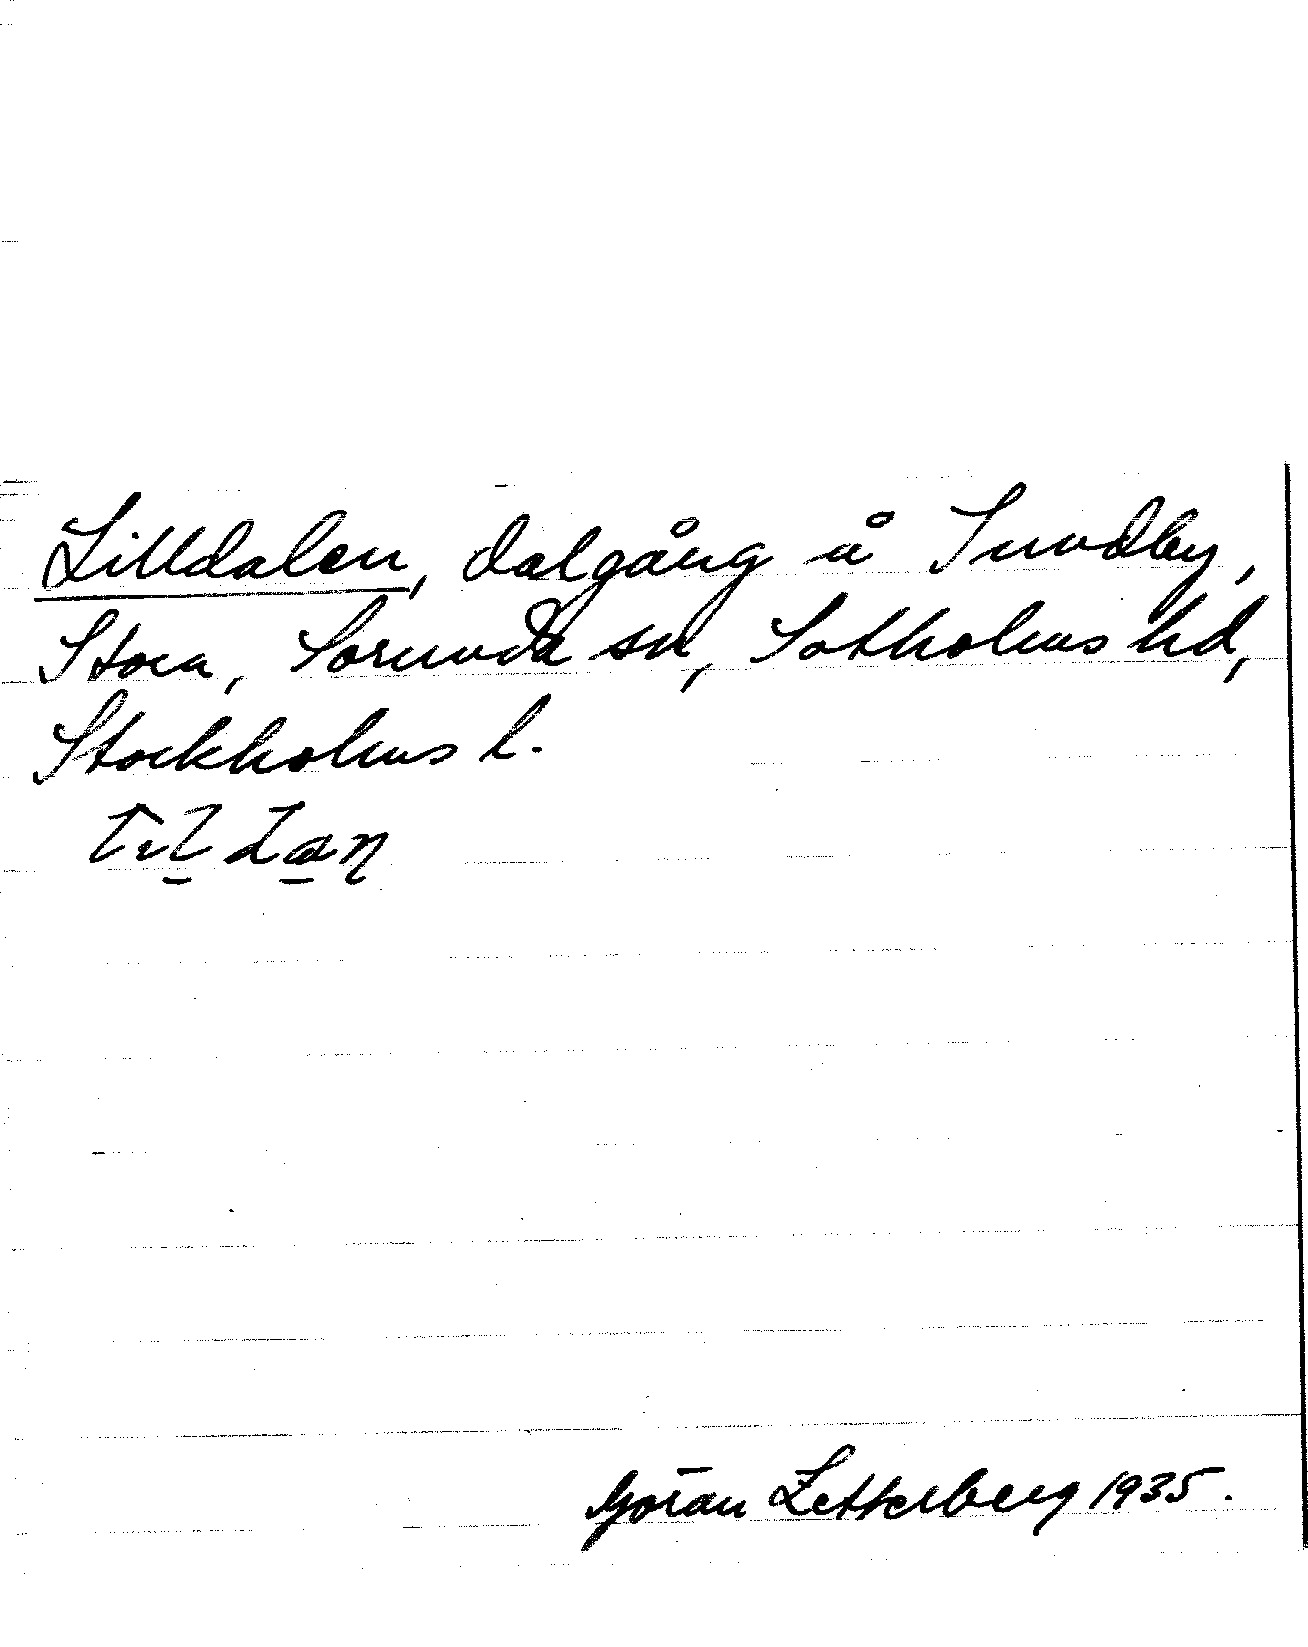 Lilldalen, dalgång å Sundby,
Stora, Sorunda sn, Sotholms hd,
Stockholms l.
Göran Zetterberg 1935.